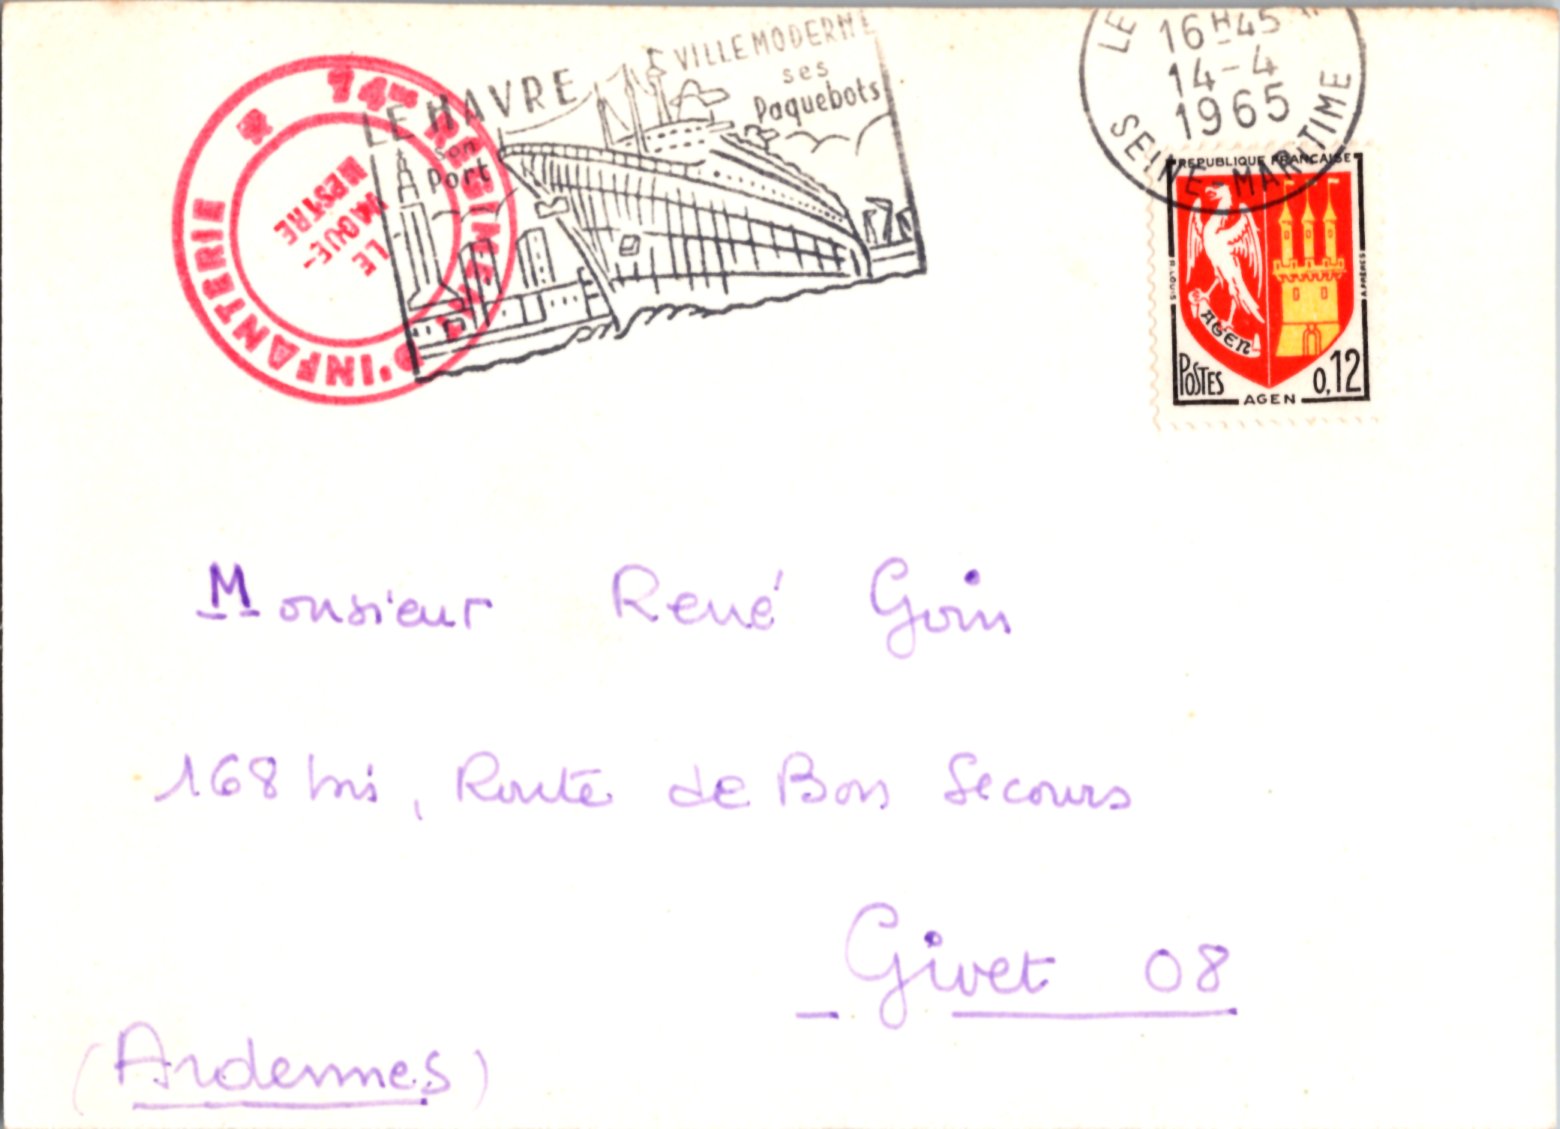 74me RÉGIMENT
D'INFANTERIE
LE
VAGUE-
MESTRE
LE HAVRE
son
Port
VILLE MODERNE
ses
Paquebots
LE
16H45
14-4
1965
SEINE-MARITIME
REPUBLIQUE FRANCAISE
AGEN
POSTES
0,12
AGEN
Monsieur René Goin
168 bis, Route de Bon Secours
Givet 08
(Ardennes)